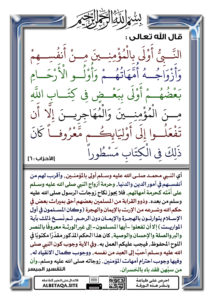 بسم الله الرحمن الرحيم
قال الله تعالى :
النَّبِيُّ أَوْلَىٰ بِالْمُؤْمِنِينَ مِنْ أَنفُسِهِمْ
وَأَزْوَاجُهُ أُمَّهَاتُهُمْ وَأُولُو الْأَرْحَامِ
بَعْضُهُمْ أَوْلَىٰ بِبَعْضٍ فِي كِتَابِ اللَّهِ
مِنَ الْمُؤْمِنِينَ وَالْمُهَاجِرِينَ إِلَّا أَن
تَفْعَلُوا إِلَىٰ أَوْلِيَائِكُم مَّعْرُوفًا كَانَ
ذَٰلِكَ فِي الْكِتَابِ مَسْطُورًا
[الأحزاب:٦]
النبي محمد صلى الله عليه وسلم أولى بالمؤمنين، وأقرب لهم من
أنفسهم في أمور الدين والدنيا، وحرمة أزواج النبي صلى الله عليه وسلم
على أمته كحرمة أمهاتهم، فلا يجوز نكاح زوجات الرسول صلى الله عليه
وسلم من بعده. وذوو القرابة من المسلمين بعضهم أحق بميراث بعض في
حكم الله وشرعه من الإرث بالإيمان والهجرة (وكان المسلمون في أول
الإسلام يتوارثون بالهجرة والإيمان دون الرحم، ثم نسخ ذلك بآية
المواريث) إلا أن تفعلوا -أيها المسلمون- إلى غير الورثة معروفًا بالنصر
والبر والصلة والإحسان والوصية، كان هذا الحكم المذكور مقدَّرًا مكتوبًا في
اللوح المحفوظ، فيجب عليكم العمل به. وفي الآية وجوب كون النبي صلى
الله عليه وسلم أحبَّ إلى العبد من نفسه، ووجوب كمال الانقياد له،
وفيها وجوب احترام أمهات المؤمنين، زوجاته صلى الله عليه وسلم، وأن
من سبَّهن فقد باء بالخسران.
التفسير الميسر
ALBETAQA.SITE